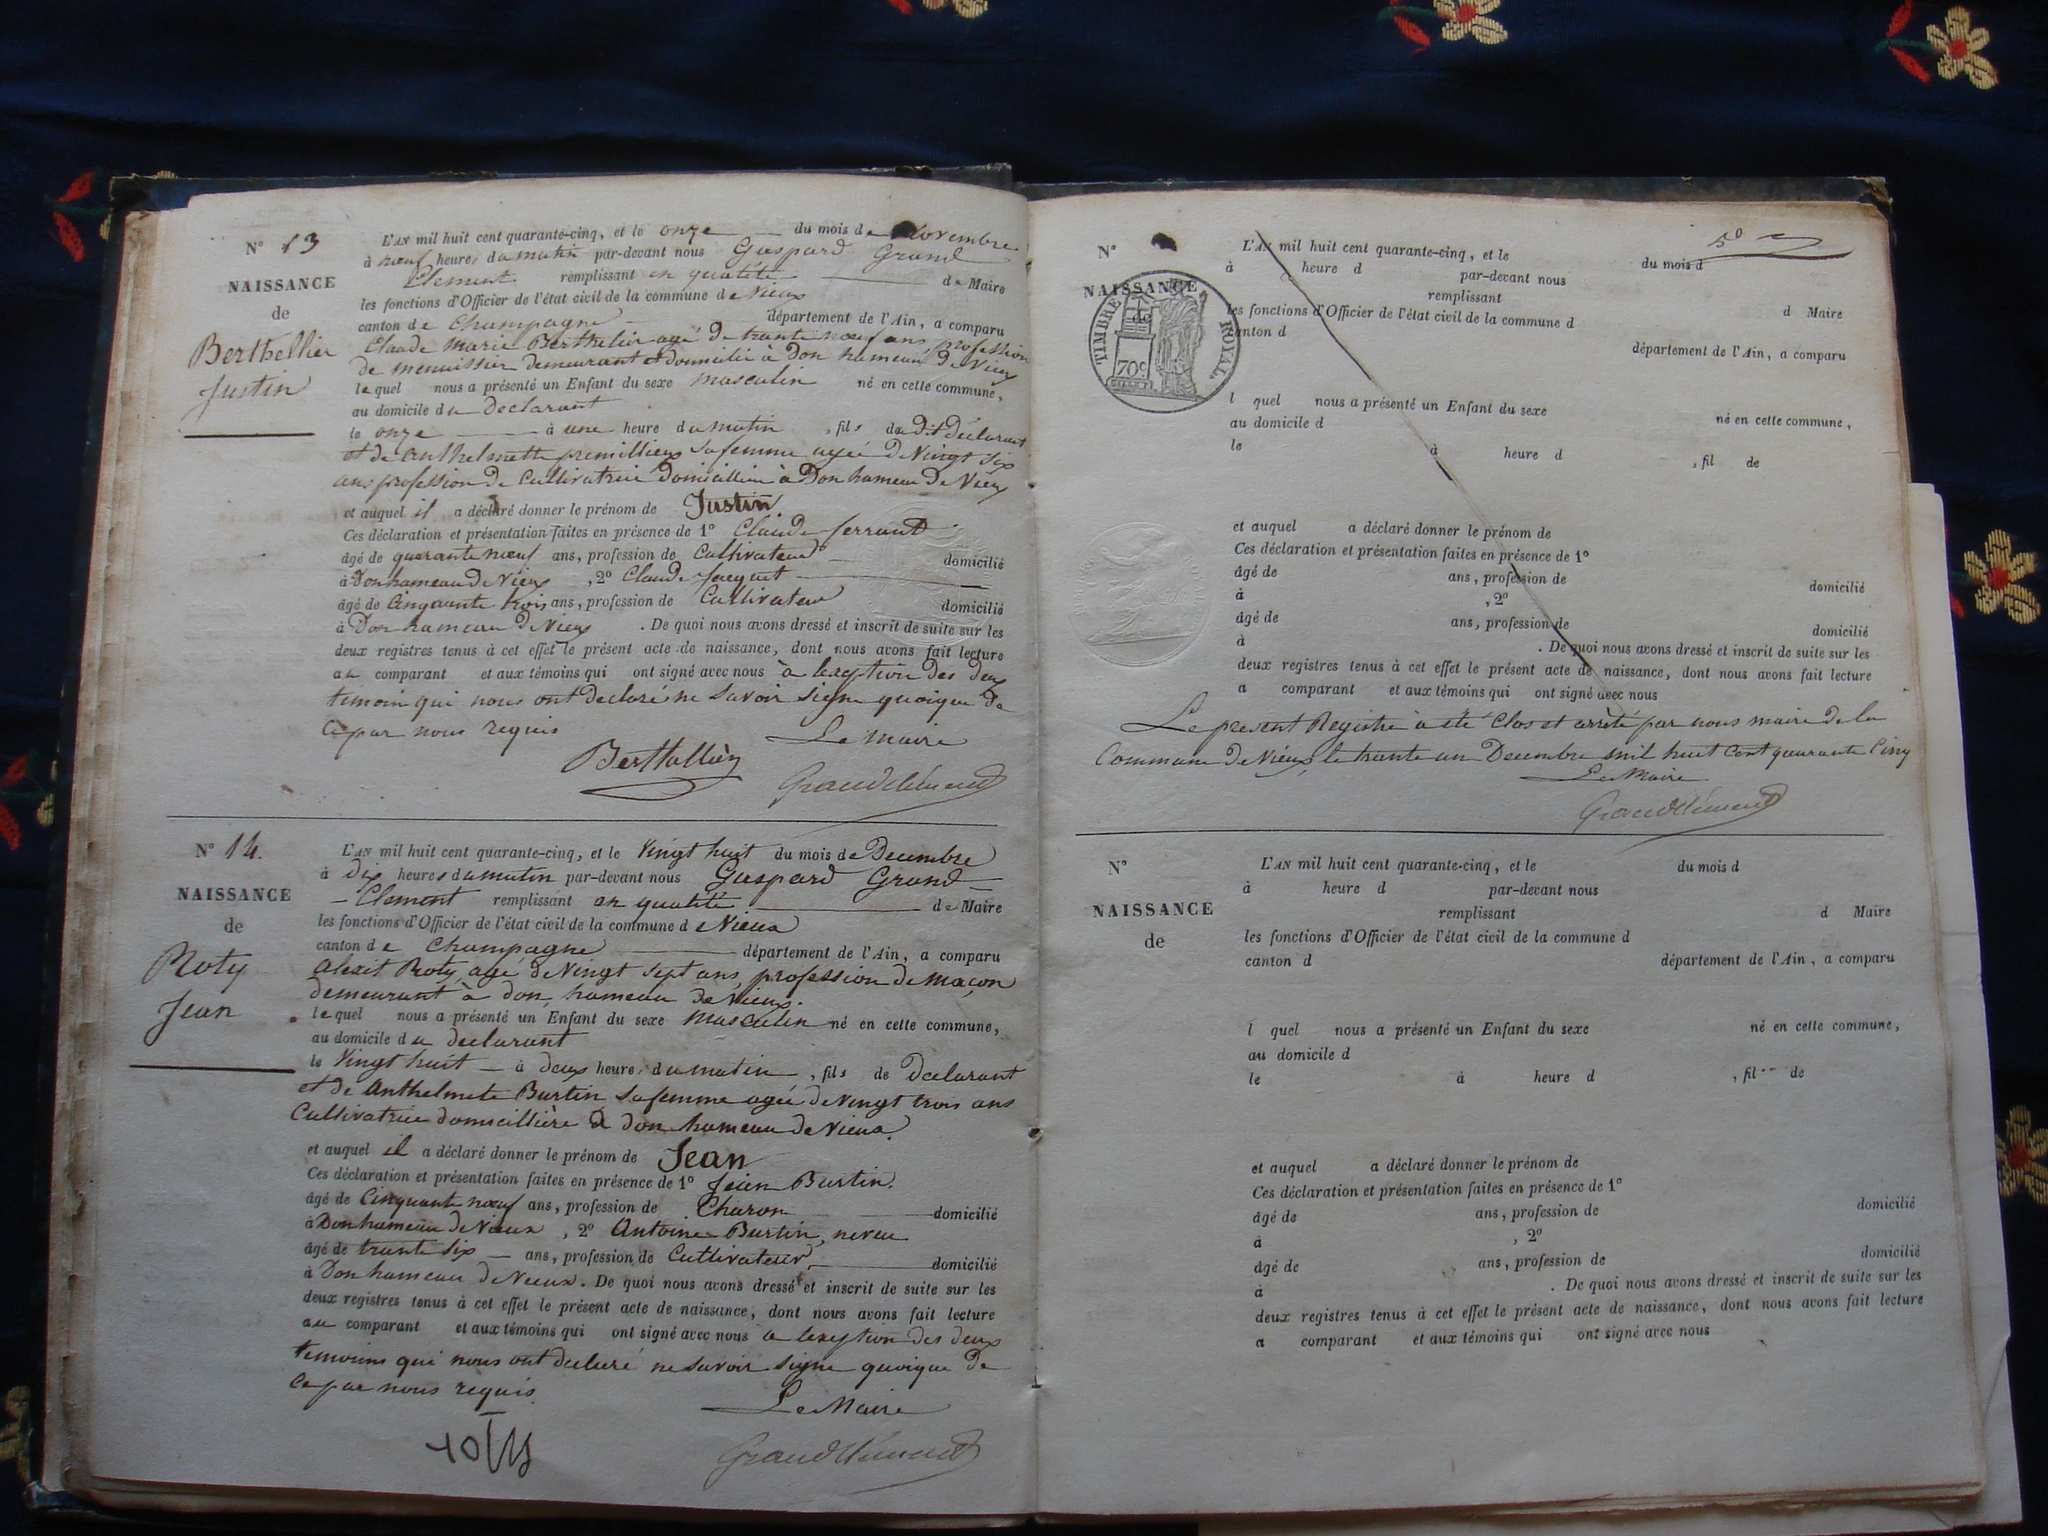 N° 13
NAISSANCE
de
Berthellier
Justin
L'AN mil huit cent quarante-cinq, et le onze du mois de Novembre
à nœuf heures du matin par-devant nous Gaspard Grand
Clement remplissant en qualité de Maire
les fonctions d'Officier de l'état civil de la commune de Vieux
canton de Champagne département de l'Ain, a comparu
Claude Marie Berthelier agé de trante nœuf ans profession
de menuissier demeurant et domicilié à Don hameau de Vieux
lequel nous a présenté un Enfant du sexe masculin né en cette commune,
au domicile du declarant
le onze à une heure du matin, fils du dit déclarant
et de Anthelmette premillieux sa femme agée de Vingt six
ans profession de Cultivatrice domicillière à Don hameau de Vieux
et auquel il a déclaré donner le prénom de Justin.
Ces déclaration et présentation faites en présence de 1° Claude ferrant
âgé de quarante nœuf ans, profession de Cultivateur domicilié
à Don hameau de Vieux, 2° Claude Jacquet
âgé de Cinquante trois ans, profession de Cultivateur domicilié
à Don hameau de Vieux. De quoi nous avons dressé et inscrit de suite sur les
deux registres tenus à cet effet le présent acte de naissance, dont nous avons fait lecture
au comparant et aux témoins qui ont signé avec nous à lexeption des deux
temoin qui nous ont declaré ne savoir signe quoique de
ce par nous requis
Le Maire
Berthellier
Grandclément
N° 14.
NAISSANCE
de
Roty
Jean
L'AN mil huit cent quarante-cinq, et le Vingt huit du mois de Decembre
à dix heures du matin par-devant nous Gaspard Grand
Clement remplissant en qualité de Maire
les fonctions d'Officier de l'état civil de la commune de Vieux
canton de Champagne département de l'Ain, a comparu
Alexit Roty, agé de Vingt sept ans, profession de maçon
demeurant à don, hameau de Vieux.
lequel nous a présenté un Enfant du sexe Masculin né en cette commune,
au domicile du declarant
le Vingt huit à deux heures du matin, fils de Declarant
et de Anthelmete Burtin sa femme agée de Vingt trois ans
Cultivatrice domicillière à don hameau de Vieux.
et auquel il a déclaré donner le prénom de Jean
Ces déclaration et présentation faites en présence de 1° Jean Burtin.
âgé de Cinquante nœuf ans, profession de Charon domicilié
à Don hameau de Vieux, 2° Antoine Burtin, neveu
âgé de trante six ans, profession de Cultivateur, domicilié
à Don hameau de Vieux. De quoi nous avons dressé et inscrit de suite sur les
deux registres tenus à cet effet le présent acte de naissance, dont nous avons fait lecture
au comparant et aux témoins qui ont signé avec nous a lexeption des deux
temoins qui nous ont declaré ne savoir signe quoique de
ce par nous requis
Le Maire
Grandclément
N°
NAISSANCE
de
TIMBRE ROYAL.
70c
L'AN mil huit cent quarante-cinq, et le du mois d
à heure d par-devant nous
remplissant d Maire
les fonctions d'Officier de l'état civil de la commune d
canton d département de l'Ain, a comparu
l quel nous a présenté un Enfant du sexe né en cette commune,
au domicile d
le à heure d , fil de
et auquel a déclaré donner le prénom de
Ces déclaration et présentation faites en présence de 1°
âgé de ans, profession de domicilié
à , 2°
âgé de ans, profession de domicilié
à . De quoi nous avons dressé et inscrit de suite sur les
deux registres tenus à cet effet le présent acte de naissance, dont nous avons fait lecture
a comparant et aux témoins qui ont signé avec nous
Le present Registre à eté Clos et arreté par nous maire de la
Commune de Vieux, le trante un Decembre mil huit cent quarante Cinq
Le Maire
Grandclément
N°
NAISSANCE
de
L'AN mil huit cent quarante-cinq, et le du mois d
à heure d par-devant nous
remplissant d Maire
les fonctions d'Officier de l'état civil de la commune d
canton d département de l'Ain, a comparu
l quel nous a présenté un Enfant du sexe né en cette commune,
au domicile d
le à heure d , fil de
et auquel a déclaré donner le prénom de
Ces déclaration et présentation faites en présence de 1°
âgé de ans, profession de domicilié
à , 2°
âgé de ans, profession de domicilié
à . De quoi nous avons dressé et inscrit de suite sur les
deux registres tenus à cet effet le présent acte de naissance, dont nous avons fait lecture
a comparant et aux témoins qui ont signé avec nous